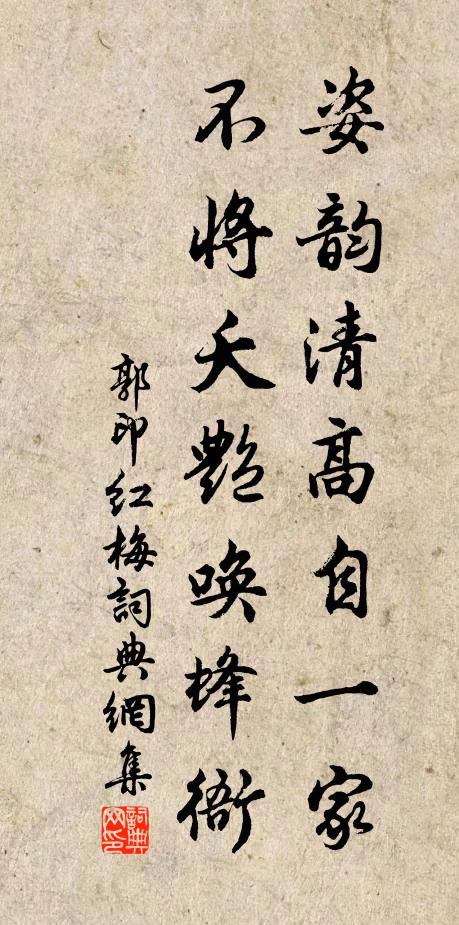 姿韵清高自一家
不将夭艶唤蜂衙
郭印红梅詞典網集
詞典网印